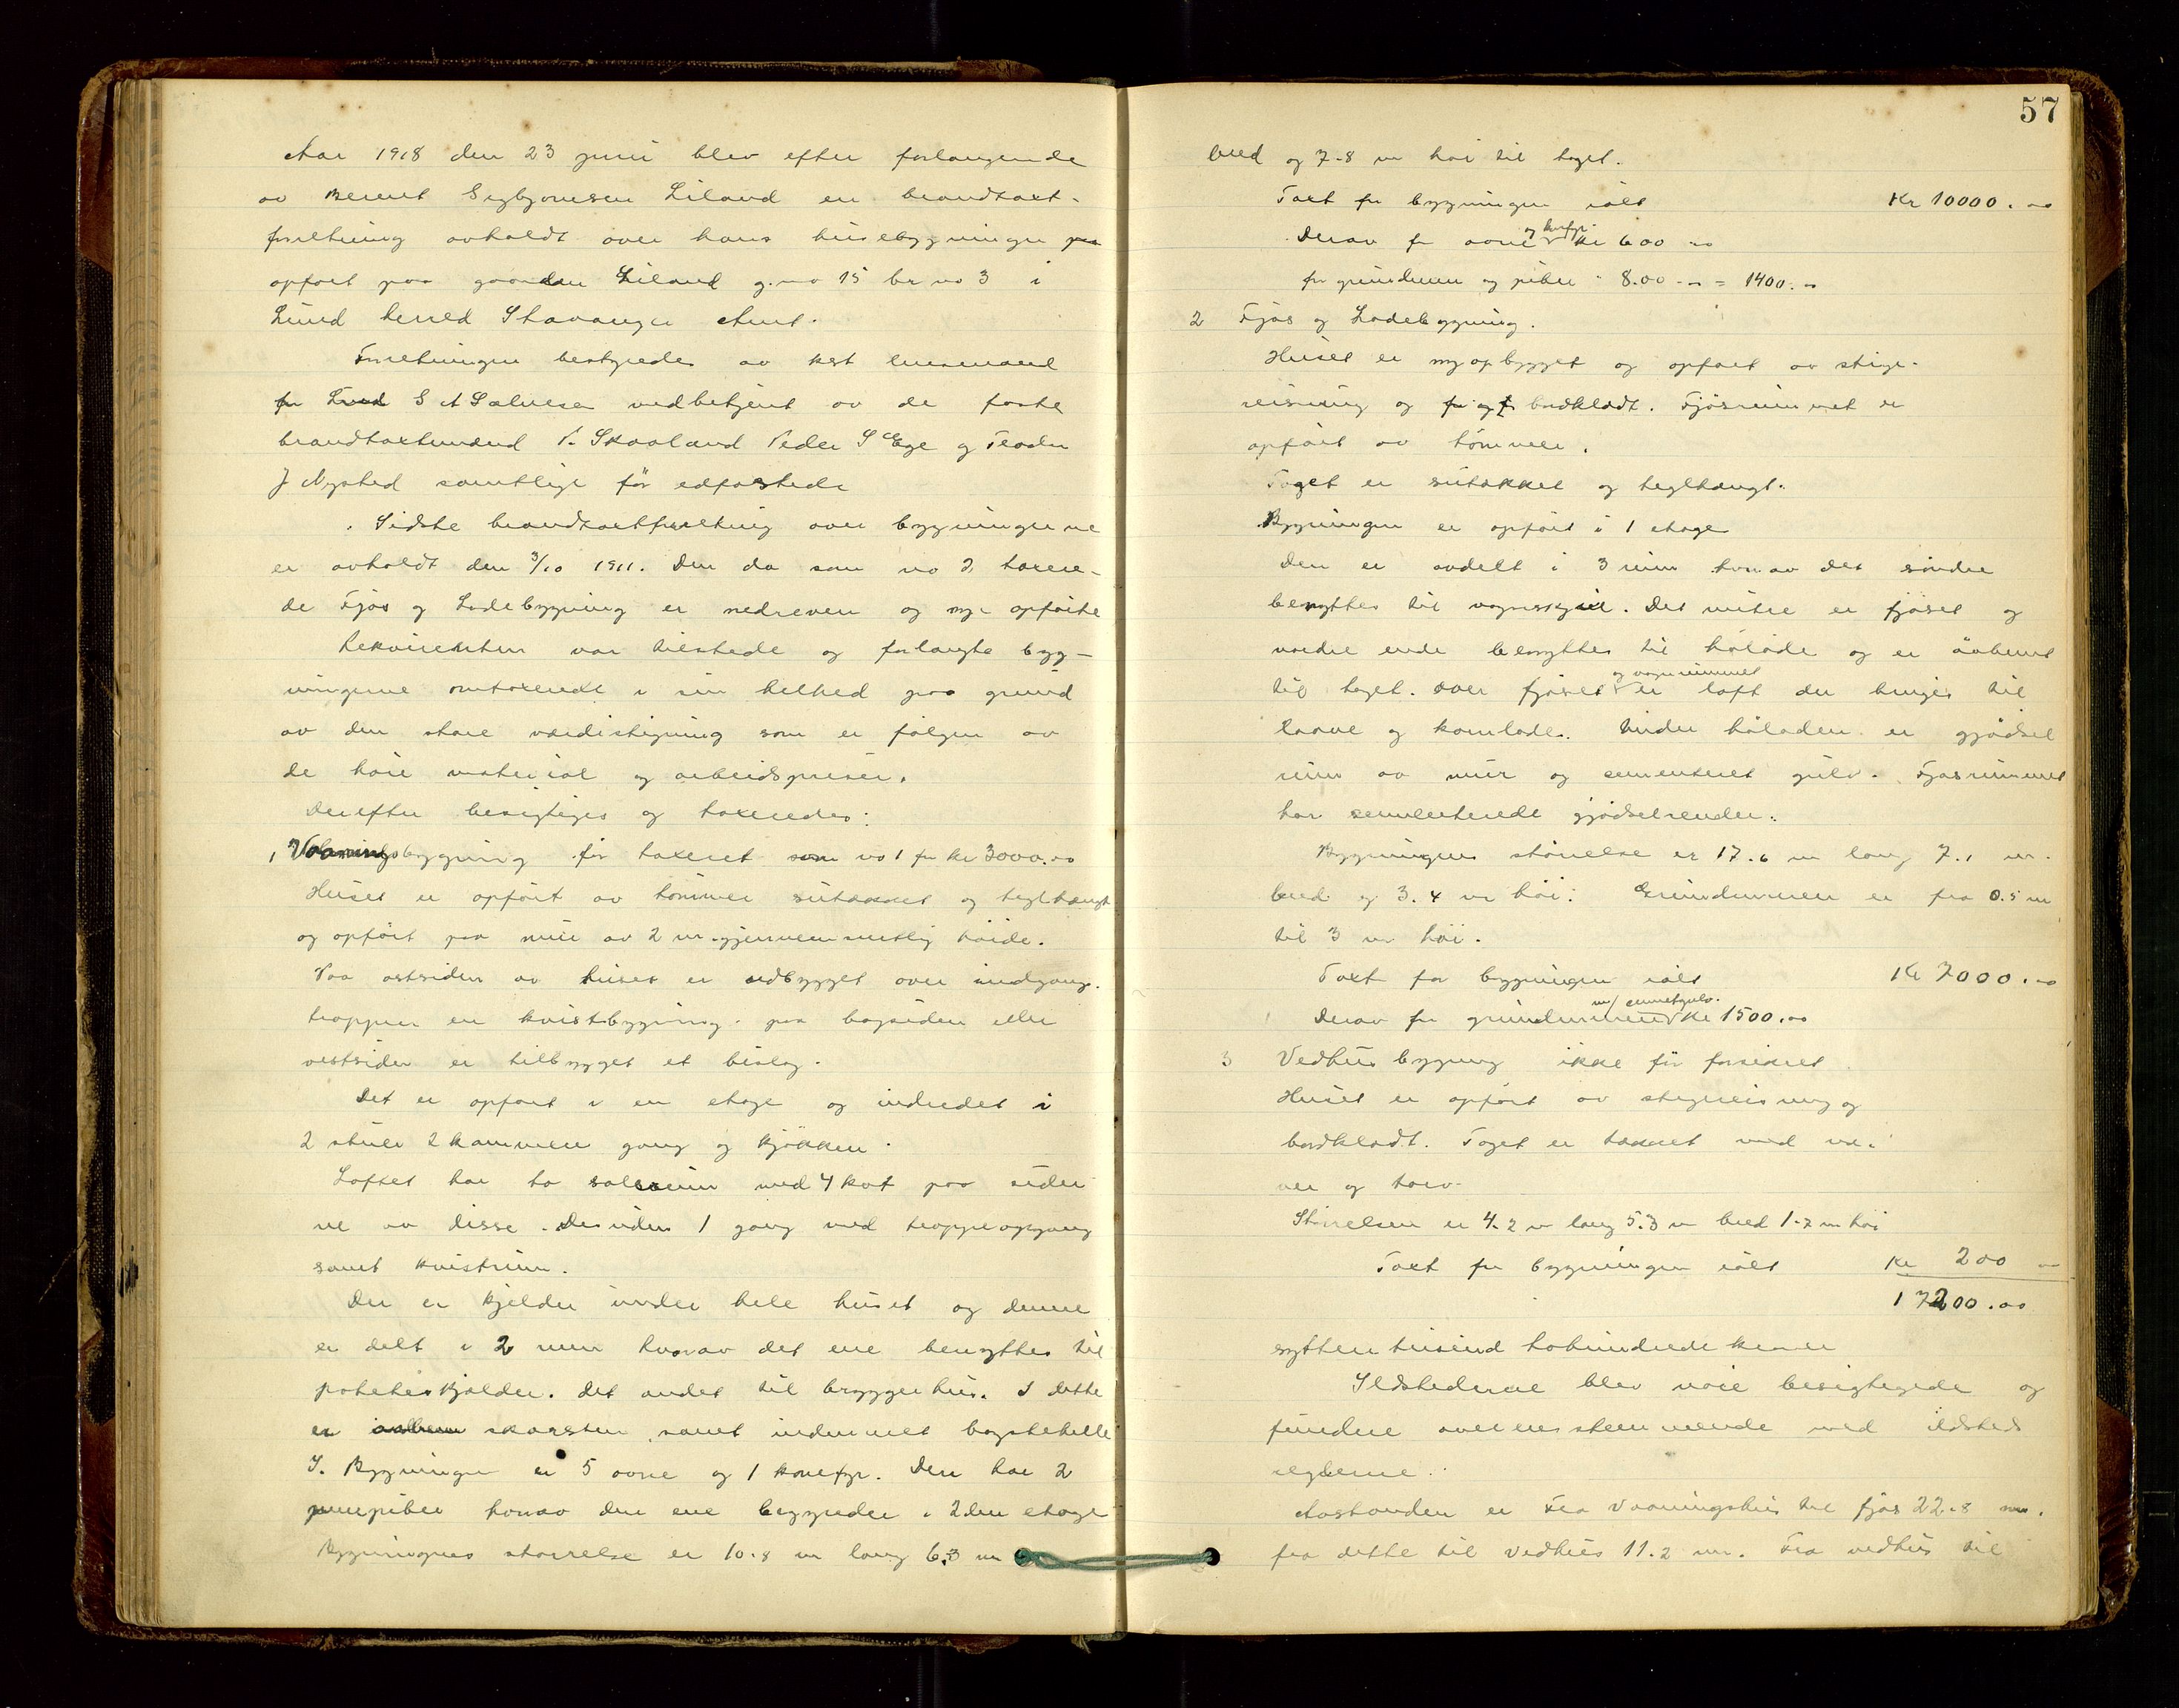 Aar 1918 den 23 juni blev efter forlangende
av Berent Sigbjørnsen Liland en brandtaxt-
forretning avholdt over hans husebygninger paa
opfört paa gaarden Liland g.no 15 br no 3 i
Lund herred Stavanger Amt.
Forretningen bestyredes av kst lensmand
for Lund S A Salvesen medbetjent av de faste
brandtaxtmænd P. Skaaland Peder S Ege og Teodor
J Nysted samtlige för edfæstede
Sidste brandtaxtforretning over bygningerne
er avholdt den 3/10 1911. Den da som no 2 taxere-
de Fjös og Ladebygning er nedreven og nye opförte
Rekvirenten var tilstede og forlangte byg-
ningerne omtaxerede i sin helhed paa grund
av den store værdistigning som er fölgen av
de höie material og arbeidspriser.
Derefter besigtiges og taxeredes:
1 Vaaningsbygning för taxeret som no 1 for kr 3000.00
Huset er opfört av tömmer sutakket og teglhængt
og opfört paa mur av 2 m gjennemsnitlig höide.
Paa östsiden av huset er udbygget over indgangs-
trappen en kvistbygning. paa bagsiden eller
vestsiden er tilbygget et bislag.
Det er opfört i en etage og indredet i
2 stuer 2 kammere gang og kjökken.
Loftet har to salsrum med 4 kot paa sider
ne av disse. Desuden 1 gang med trappeopgang
samt kvistrum.
Der er kjelder under hele huset og denne
er delt i 2 rum hvorav det ene benyttes til
poteteskjelder. Det andet til bryggerhus. I dette
er aaben skorsten samt indmuret bagstehelle
I. Bygningen er 5 ovne og 1 komfyr. Den har 2
murpiber hvorav den ene begynder i 2den etage
Bygningens störrelse er 10.8 m lang 6.3 m
57
bred og 7.8 m höi til taget.
Taxt for bygningen ialt Kr 10000.00
og komfyr
Derav for ovne kr 600 00
for grundmur og piber " 8.00 00 = 1400.00
2 Fjös og Ladebygning.
Huset er ny opbygget og opfört av stige-
reisning og bordklædt. Fjösrummet er
opfört av tömmer.
Taget er sutakket og teglhængt.
Bygningen er opfört i 1 etage
Den er avdelt i 3 rum hvorav det söndre
benyttes til vognskjul. Det mitre er fjöset og
nordre ende benyttes til hölade og er aabent
og vognrummet
til taget. Over fjöset er loft der bruges til
laave og kornlade. Under höladen er gjödsel
rum av mur og sementeret gulv. Fjösrummet
har sementerede gjödselrender.
Bygningens störrelse er 17.6 m lang 7.1 m.
bred og 3.4 m höi. Grundmuren er fra 0.5 m
til 3 m höi.
Taxt for bygningen ialt Kr 7000.00
m/ cementgulv.
Derav for grundmuren kr 1500.00
3 Vedhus bygning ikke för forsikret
Huset er opfört av stigreisning og
bordklædt. Taget er takket med næ-
ver og torv.
Störrelsen er 4.2 m lang 5.3 m bred 1.7 m höi
Taxt for bygningen ialt Kr 200 00
17200.00
sytten tusind tohundrede kroner
Ildstederne blev nöie besigtigede og
fundne overensstemmende med ildsteds
reglerne.
Avstanden er fra vaaningshus til fjös 22.8 m.
fra dette til vedhus 11.2 m. Fra vedhus til